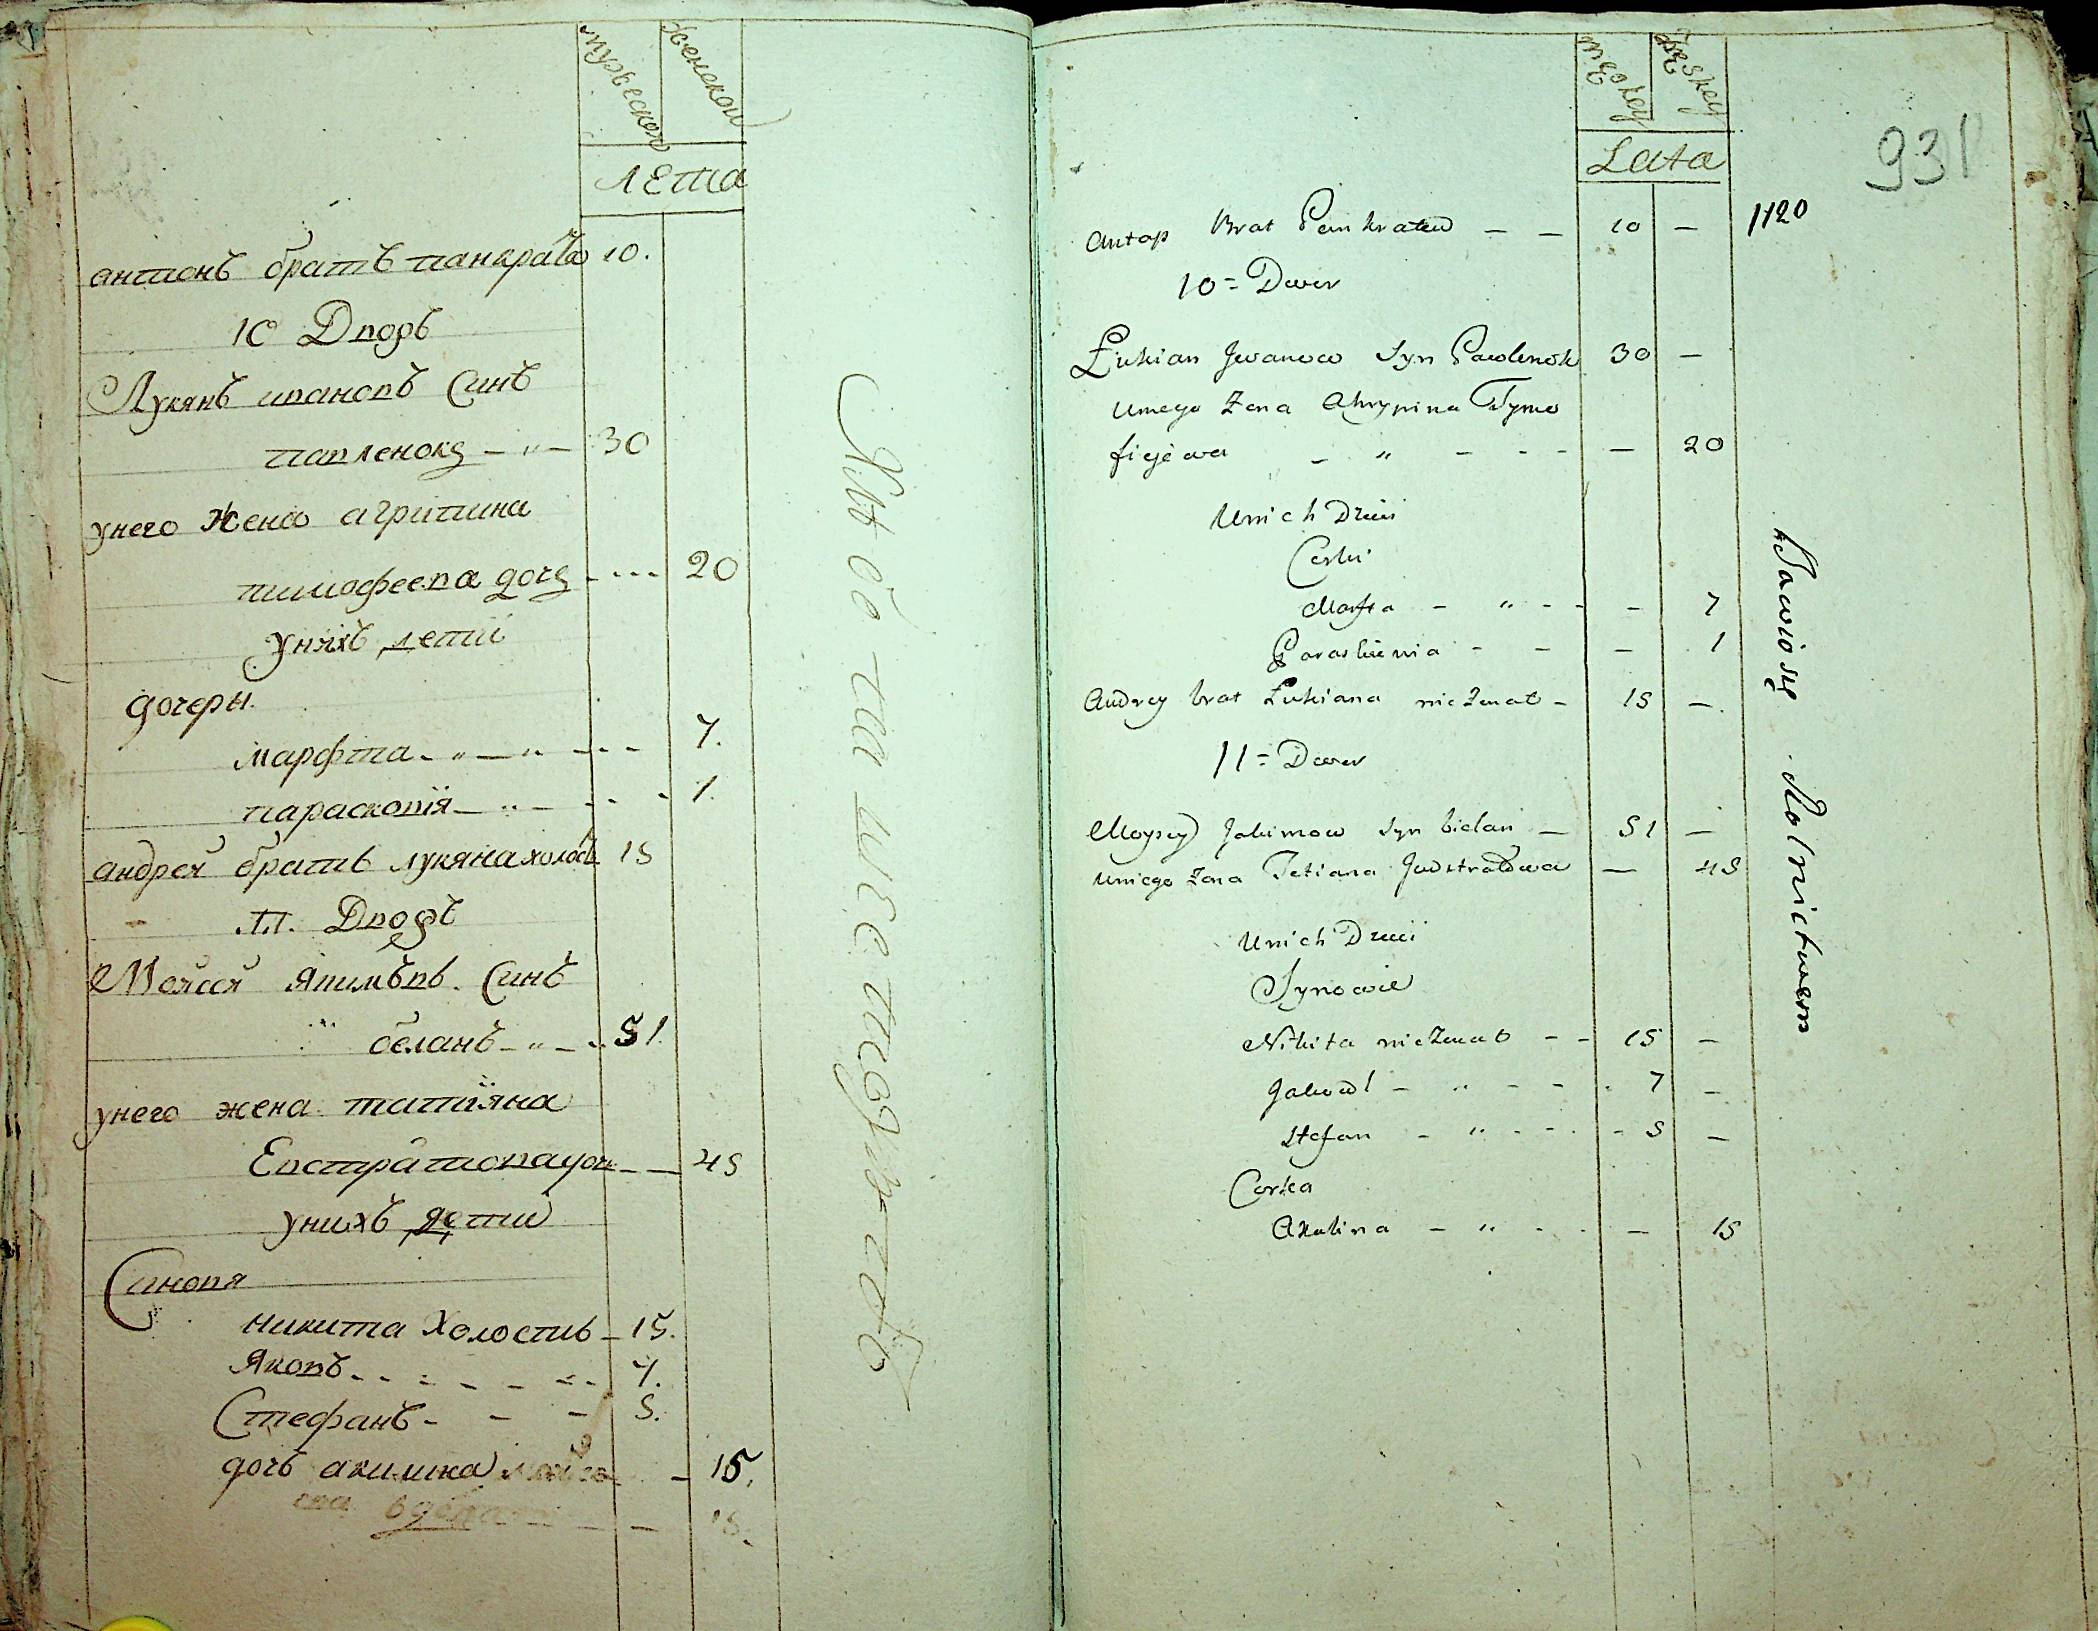 мужеска женскои
лета
антонъ братъ панкрата 10.
10 Дворъ
Лукянъ ивановъ Синъ
павленокъ — „ — 30
унего Жена агрипина
тимофеева дочъ - - - - 20
унихъ дети
дочеры.
марфта - „ — „ - - - 7.
парасковія — „ — - - - 1.
андрей братъ лукяна холостъ 15
11. Дворъ
Мойсей Якимовъ. Синъ
беланъ - „ — - 51.
унего жена татіяна
Евстратова доч — — 45
унихъ дети
Синовя
никита Холостивъ — 15.
Яковъ - - - - - - - 7.
Стефанъ - - — 5.
дочъ акилина - 15.
męskey żęskey
Lata
931
Antop Brat Pankratew — — 10 — 1120
10 = Dwor
Łukian Jwanow Syn Pawlenok 30 —
Umego Zona Ahrypina Tymo
fiejewa — „ — - - - — 20
Unich Dzieci
Corki
Marfta — „ - - — 7
Paraskiewia - — — 1
Andrey brat Łukiana nieżenat — 15 —.
11 = Dwor
Moysey Jakimow Syn bielan — 51 —
Uniego Zona Tetiana Jwstratowa — 45
Unich Dzieci
Synowie
Nikita nieżenat - - 15 —
Jakow — „ - - - 7 —
Stefan — „ - - - 5 —
Corka
Akulina — „ - - — 15
Bawio się Rolnictwem